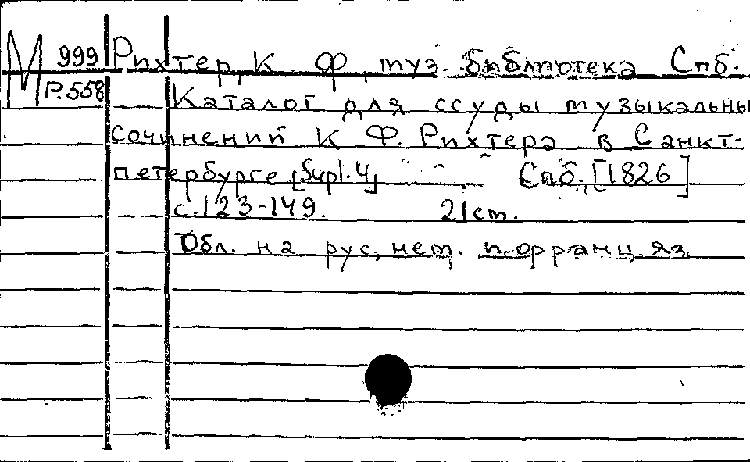 М 999 Рихтер, К Ф муз библиотека Спб.
Р.558 Каталог для ссуды музыкальны
сочинений К Ф. Рихтера в Санкт-
петербурге [Supl. 4] Спб., [1826]
с. 123-149. 21cm.
Обл. на рус, нем. и франц яз